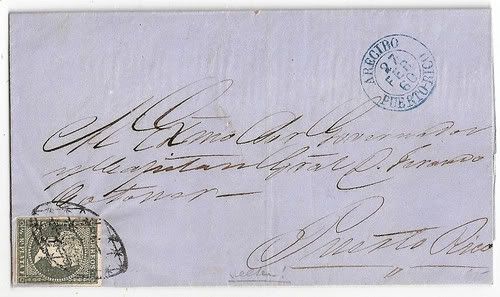 ARECIBO
27
FEB
60
PUERTO-RICO
Al Exmo Sor Governador
y Capitan Gral D. Fernando
Cotoner
Puerto Rico